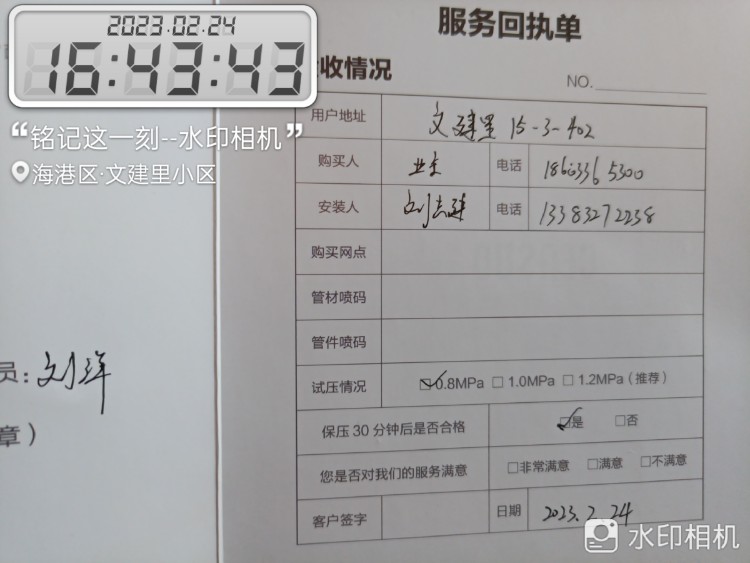 2023.02.24
16:43:43
“铭记这一刻--水印相机”
海港区·文建里小区
服务回执单
收情况
NO.
用户地址 文建里 15-3-402
购买人 业主 电话 18603365300
安装人 刘志建 电话 13383272238
购买网点
管材喷码
管件喷码
试压情况 ☑0.8MPa □1.0MPa □1.2MPa(推荐)
保压30分钟后是否合格 ☑是 □否
您是否对我们的服务满意 □非常满意 □满意 □不满意
客户签字 日期 2023.2.24
员:刘洋
章)
水印相机